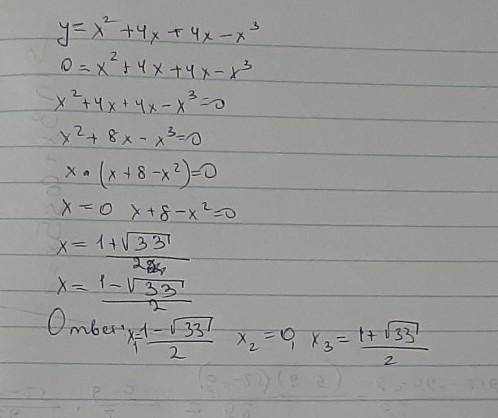 y = x² + 4x + 4x - x³
0 = x² + 4x + 4x - x³
x² + 4x + 4x - x³ = 0
x² + 8x - x³ = 0
x · (x + 8 - x²) = 0
x = 0 x + 8 - x² = 0
x = (1 + √33)/2
x = (1 - √33)/2
Ответ: x₁ = (1 - √33)/2 x₂ = 0, x₃ = (1 + √33)/2